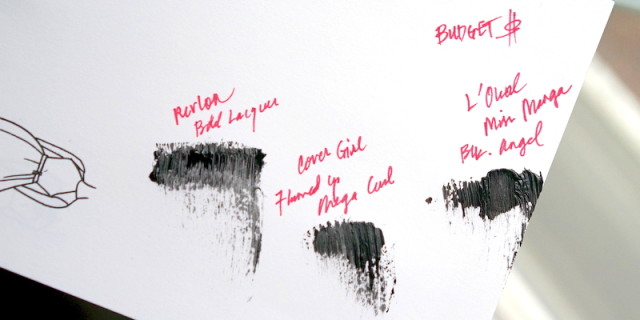 BUDGET $
Revlon
Bold Lacquer
Cover Girl
Flamed Up
Mega Curl
L'Oreal
Miss Manga
Blk. Angel